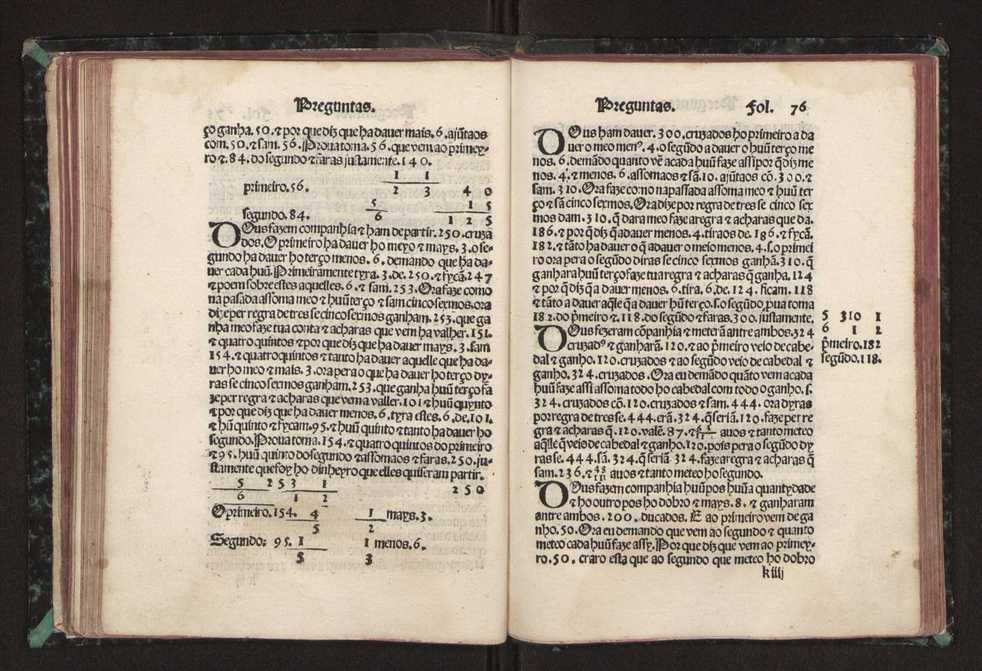 Preguntas.
ço ganha. 50. & por que diz que ha dauer mais. 6. ajũtaos
com. 50. & sam. 56. Proua toma. 56. que vem ao primey-
ro & .84. do segundo & faras justamente. 140.
1 1
primeiro. 56. 2 3 4 0
5 1 5
segundo. 84. 6 1 2 5
DOus fazem companhia & ham de partir. 250. cruza
dos. O primeiro ha dauer ho meyo & mays. 3. o se-
gundo ha dauer ho terço menos. 6. demando que ha da-
uer cada huũ. Primeiramente tyra. 3. de. 250. & fycã. 247
& poem sobre estes aquelles. 6. & sam. 253. Ora faze como
na pasada assoma meo & huũ terço & sam cinco sermos. ora
dize per regra de tres se cinco sexmos ganham. 253. que ga
nha meo faze tua conta & acharas que vem ha valher. 151.
& quatro quintos & por que diz que ha dauer mays. 3. sam
154. & quatro quintos & tanto ha dauer aquelle que ha da-
uer ho meo & mais. 3. ora pera o que ha dauer ho terço dy-
ras se cinco sermos ganham. 253. que ganha huũ terço fa
ze per regra & acharas que vem a valler. 101 & huũ quynto
& por que diz que ha dauer menos. 6. tyra estes. 6. de. 101.
& hũ quinto & fycam. 95. & huũ quinto & tanto ha dauer ho
segundo. Proua toma. 154. & quatro quintos do primeiro
& 95. huũ quinto do segundo & assomaos & faras. 250. ju-
stamente que foy ho dinheyro que elles quiseram partir.
5 2 5 3 1 2 5 0
6 1 2
O primeiro. 154. 4 1 mays. 3.
5 2
Segundo: 95. 1 1 menos. 6.
5 3
Preguntas. Fol. 76
DOus ham dauer. 300. cruzados ho primeiro a da
uer o meo menꝰ. 4. o segũdo a dauer o huũ terço me
nos. 6. demãdo quanto vẽ a cada huũ faze assi por q̃ diz me
nos. 4. & menos. 6. assomaos & sã. 10. ajũtaos cõ. 300. &
sam. 310. Ora faze como na passada assoma meo & huũ ter
ço & sã cinco sexmos. Ora dize por regra de tres se cinco sex
mos dam. 310. q̃ dara meo faze a regra & acharas que da.
186. & por q̃ diz q̃ a dauer menos. 4. tira os de. 186. & fycã.
182. & tãto ha dauer o q̃ a dauer o meio menos. 4. s. o primei
ro ora pera o segũdo diras se cinco sexmos ganhã. 310. q̃
ganhara huũ terço faze tua regra & acharas q̃ ganha. 124
& por q̃ diz q̃ a dauer menos. 6. tira. 6. de. 124. ficam. 118
& tãto a dauer aq̃le q̃ a dauer hũ terço. s. o segũdo. ꝓua toma
182. do p̃meiro & .118. do segũdo & faras. 300. justamente.
5 310 1
6 1 2
p̃meiro. 182
segũdo. 118.
DOus fezeram cõpanhia & meterã antre ambos. 324
cruzadꝰ & ganharã. 120. & ao p̃meiro veio de cabe-
dal & ganho. 120. cruzados & ao segũdo veio de cabedal &
ganho. 324. cruzados. Ora eu demãdo quãto vem a cada
huũ faze assi assoma todo ho cabedal com todo o ganho. s.
324. cruzados cõ. 120. cruzados & sam. 444. ora dyras
por regra de tres se. 444. erã. 324. q̃ seriã. 120. faze per re
gra & acharas q̃. 120. valẽ. 87. & auos & tanto meteo
aq̃lle q̃ veio de cabedal & ganho. 120. pois pera o segũdo dy
ras se. 444. sã. 324. q̃ seriã 324. faze a regra & acharas q̃
sam. 236. & auos & tanto meteo ho segundo.
DOus fazem companhia huũ pos huũa quantydade
& ho outro pos ho dobro & mays. 8. & ganharam
antre ambos. 200. ducados. E ao primeiro vem de ga
nho. 50. Ora eu demando que vem ao segundo & quanto
meteo cada huũ faze assy. Por que diz que vem ao primey-
ro. 50. craro esta que ao segundo que meteo ho dobro
kiiij